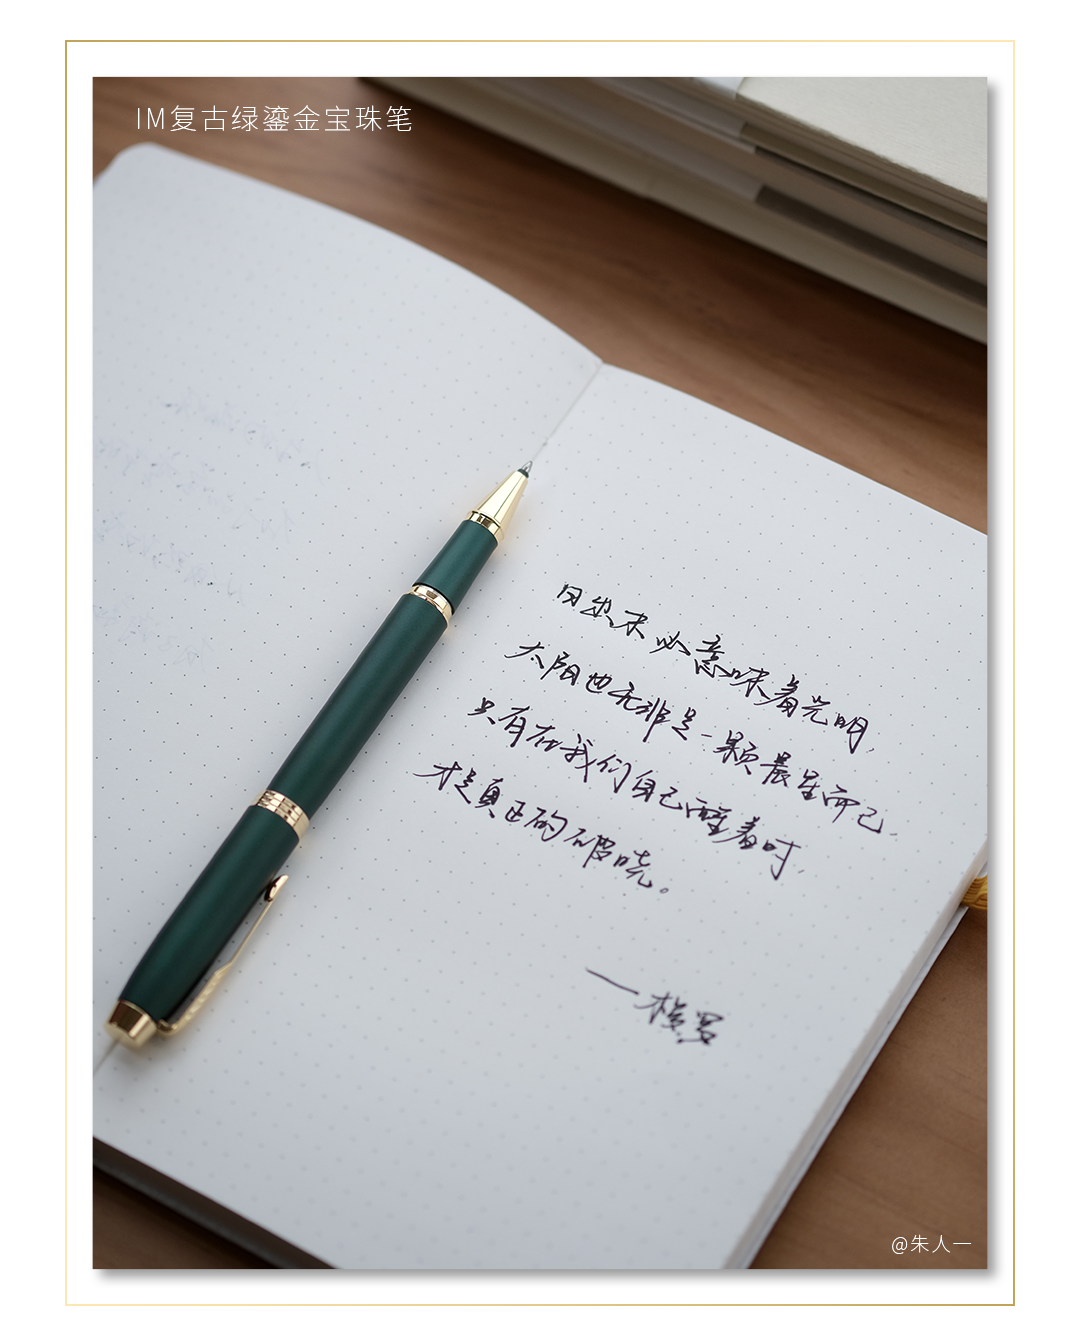 IM复古绿鎏金宝珠笔
日出未必意味着光明,
太阳也无非是一颗晨星而已,
只有在我们自己醒着时,
才是真正的破晓。
——梭罗
@朱人一